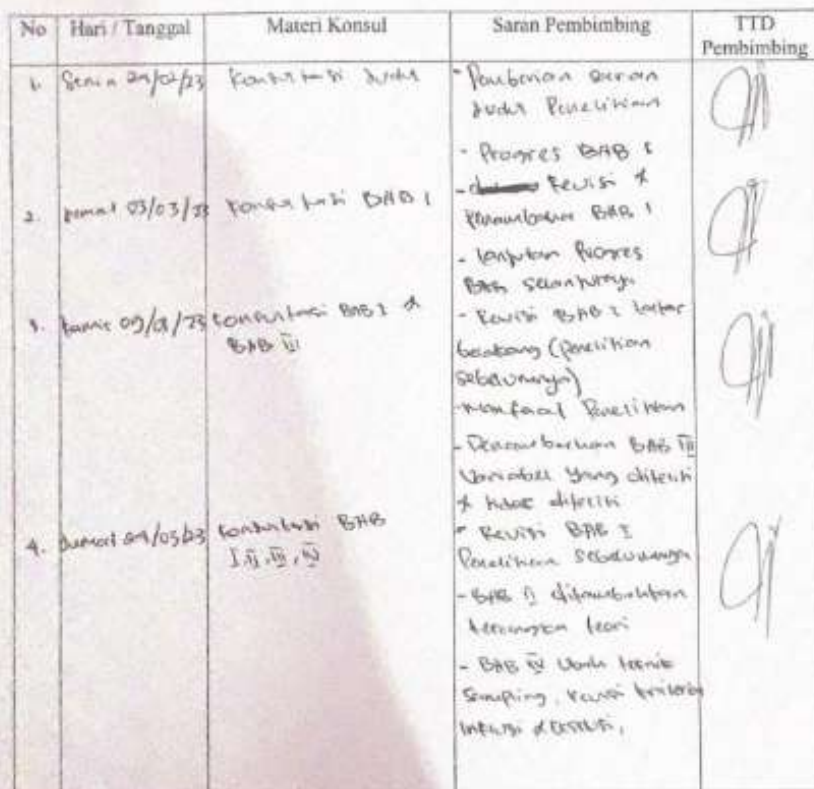 No Hari / Tanggal Materi Konsul Saran Pembimbing TTD Pembimbing
1. Senin /02/23 Konsultasi Judul - Pemberian saran
Judul Penelitian
- Progres BAB I
2. Jumat 03/03/23 Konsultasi BAB I - Revisi &
Penambahan BAB I
- lanjutan Progres
BAB selanjutnya
3. Kamis 09/ /23 Konsultasi BAB I &
BAB III
- Revisi BAB I latar
belakang (Penelitian
sebelumnya)
- Manfaat Penelitian
- BAB III
Variabel yang diteliti
& tidak diteliti
4. Jumat /03/23 Konsultasi BAB
I, II, III, IV
- Revisi BAB I
Penelitian sebelumnya
- BAB II ditambahkan
kerangka teori
- BAB IV Ubah teknik
Sampling, kriteria
inklusi &